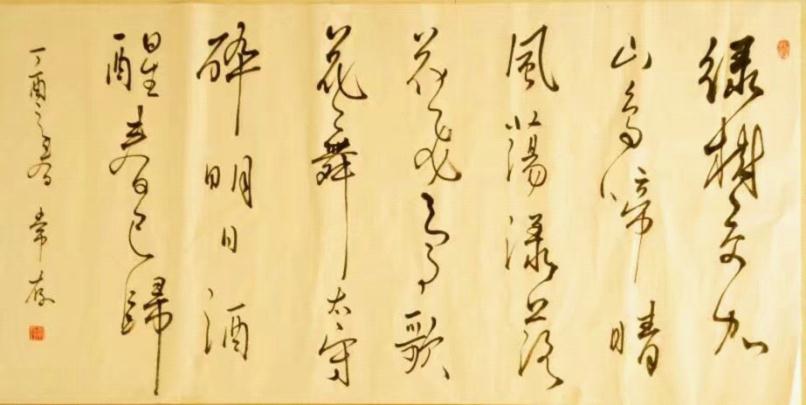 緑樹交加
山鳥啼晴
風蕩漾落
花飛鳥歌
花舞太守
酔明日酒
醒春已歸
丁酉之春